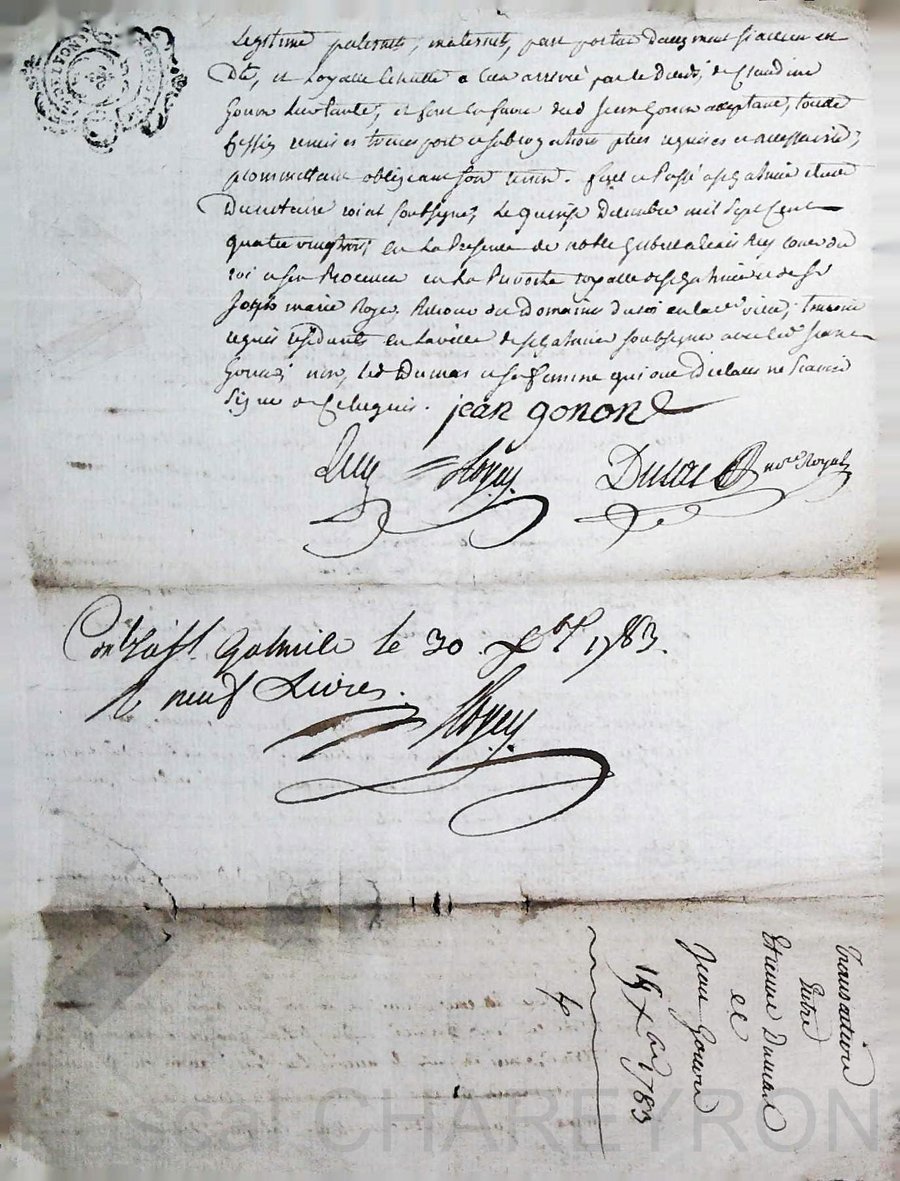 Legitime paternels, maternels, part portion d'augment si aucun en
Dû, et loyalle échutte à lui arrivé par le Decès, de Claudine
Gonon leur tante, et font en faveur dud Jean Gonon acceptant, toute
remises transport et subrogations plus requises et necessaires,
promettant obligeant fait et Passé a St Galmier etude
Du notaire soussigné, Le quinze Decembre mil sept cent
quatre vingt trois, en La Presence de noble Rey du
roi et son Procureur en La Prevosté royalle de St Galmier et de Sr
Joseph marie Royer Receveur des Domaines du roi en lade ville, temoins
requis résidants en La ville de St Galmier soussignés avec led Jean
Gonon, non, led Dumas et sa femme qui ont Declaré ne sçavoir
signé de ce Enquis. jean gonon
Rey Royer Ducas nore Royal
Conlé à St. Galmier le 30 Xbre 1783.
R neuf Livres.
Royer
Transaction
Entre
Etienne Dumas
et
Jean Gonon
15 Xbre 1783
Pascal CHAREYRON